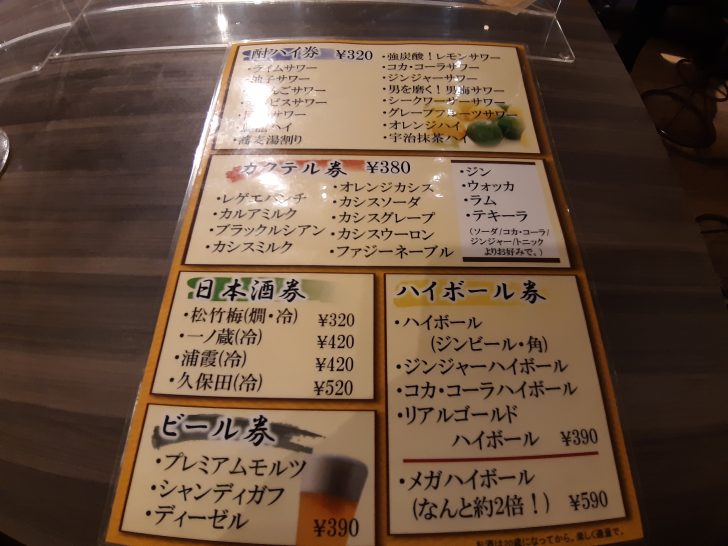 酎ハイ券 ¥320
・ライムサワー
・柚子サワー
・りんごサワー
・カルピスサワー
サワー
ハイ
・蕎麦湯割り
・強炭酸！レモンサワー
・コカ・コーラサワー
・ジンジャーサワー
・男を磨く！男梅サワー
・シークワーサーサワー
・グレープフルーツサワー
・オレンジハイ
・宇治抹茶ハイ
カクテル券 ¥380
・レゲエパンチ
・カルアミルク
・ブラックルシアン
・カシスミルク
・オレンジカシス
・カシスソーダ
・カシスグレープ
・カシスウーロン
・ファジーネーブル
・ジン
・ウォッカ
・ラム
・テキーラ
(ソーダ/コカ・コーラ/
ジンジャー/トニック
よりお好みで。)
日本酒券
・松竹梅(燗・冷) ¥320
・一ノ蔵(冷) ¥420
・浦霞(冷) ¥420
・久保田(冷) ¥520
ビール券
・プレミアムモルツ
・シャンディガフ
・ディーゼル ¥390
ハイボール券
・ハイボール
(ジンビール・角)
・ジンジャーハイボール
・コカ・コーラハイボール
・リアルゴールド
ハイボール ¥390
・メガハイボール
(なんと約2倍！) ¥590
お酒は20歳になってから。楽しく適量で。